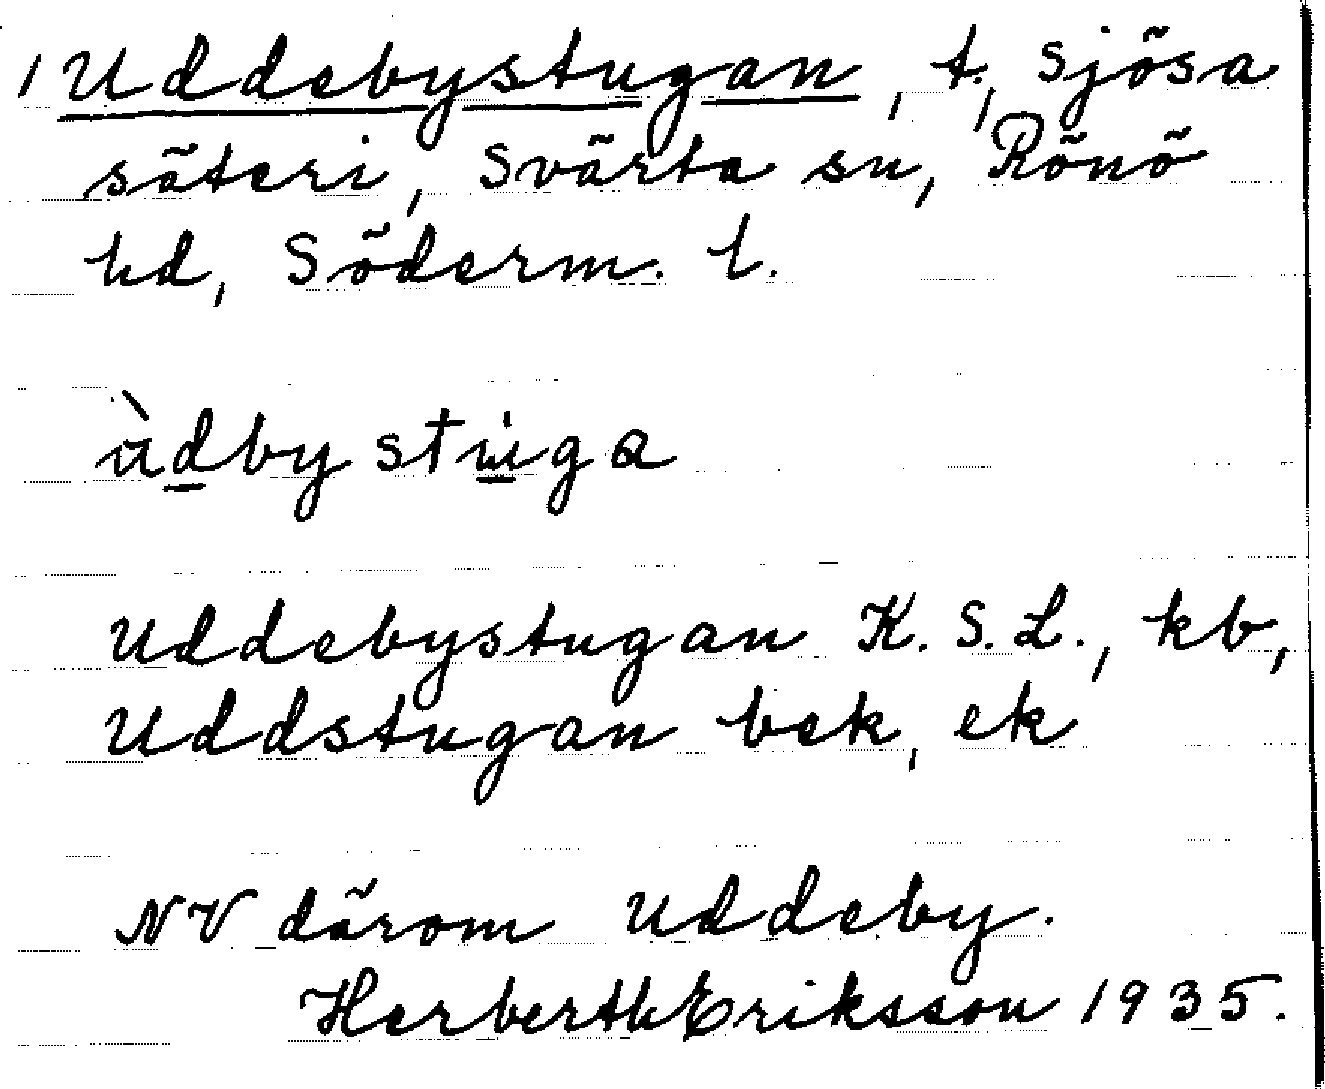 1 Uddebystugan, t., Sjösa
säteri, Svärta sn, Rönö
hd, Söderm. l.
ùdbystuga
Uddebystugan K. S. L., kb,
Uddstugan bek, ek
NV därom Uddeby.
Herberth Eriksson 1935.